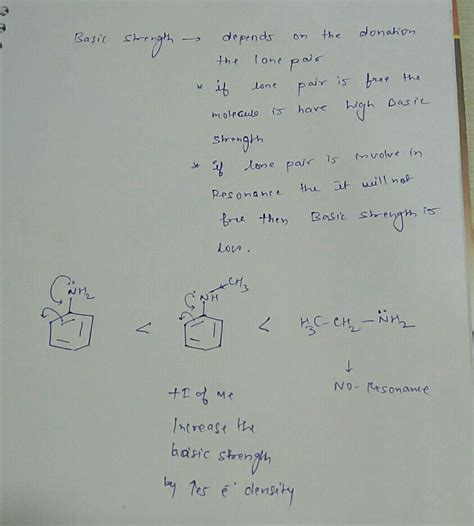 Basic strength → depends on the donation
the lone pair
* if lone pair is free the
molecule is have high Basic
strength
* if lone pair is involve in
Resonance the it will not
free then Basic strength is
low.
N̈H2 < N̈H CH3 < H3C-CH2-N̈H2
↓
NO-Resonance
+I of Me
Increase the
basic strength
by ↑es e⁻ density